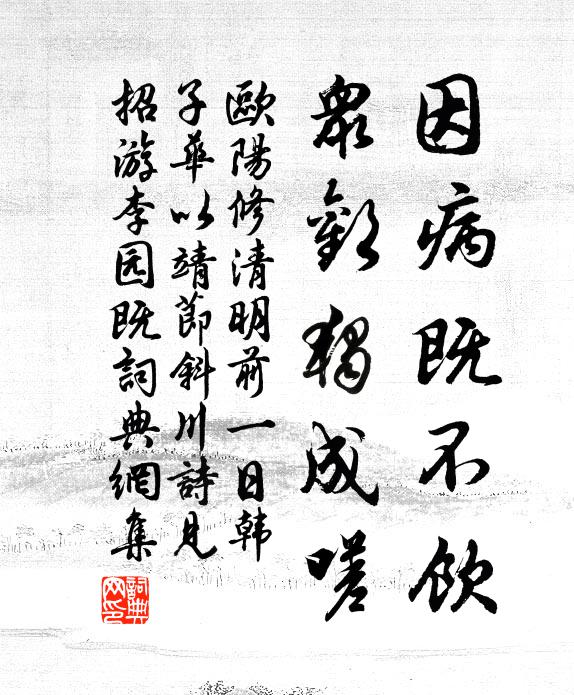 因病既不飲
衆歡獨成嗟
歐陽修清明前一日韩
子華以靖節斜川詩見
招游李园既詞典網集